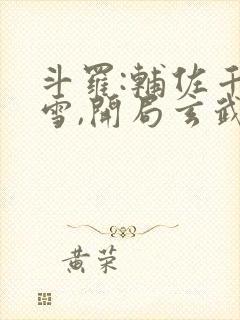 斗羅:輔佐千
雪,開局玄武
黃荣